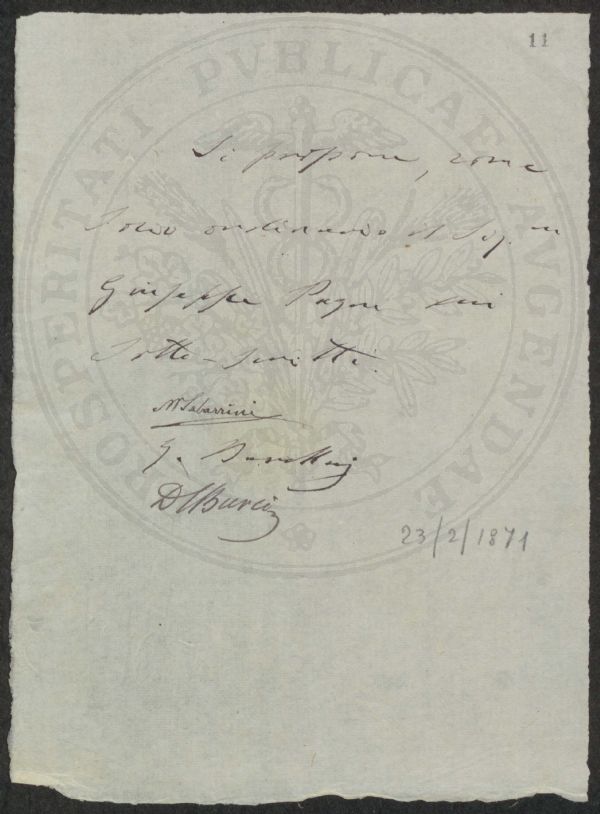 11
PROSPERITATI PVBLICAE AVGENDAE
Si propone, come
Socio ordinario il Sig.re
Giuseppe dai
Sotto-scritti.
G.
23/2/1871